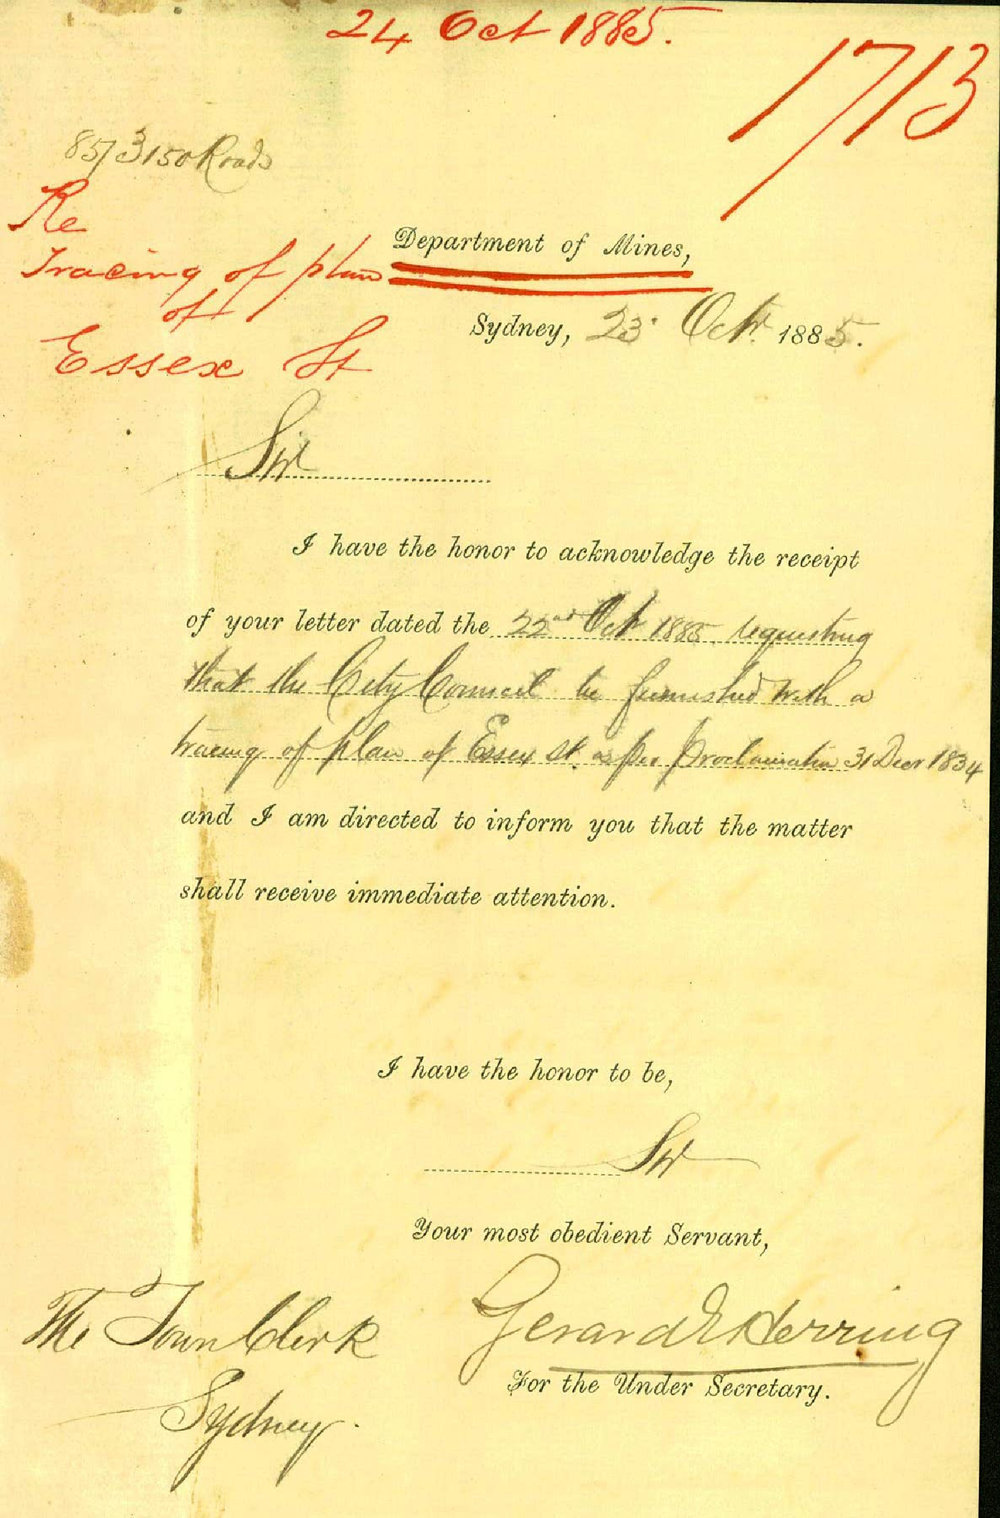 24 Oct 1885.
1713
85/3150 Roads
Re
Tracing of plan
of
Essex St
Department of Mines,
Sydney, 23 Octr. 1885.
Sir
I have the honor to acknowledge the receipt
of your letter dated the 22nd Oct 1885 requesting
that the City Council be furnished with a
tracing of plan of Essex St. as per Proclamation 31 Decr 1834
and I am directed to inform you that the matter
shall receive immediate attention.
I have the honor to be,
Sir
Your most obedient Servant,
Gerard E Herring
For the Under Secretary.
The Town Clerk
Sydney.